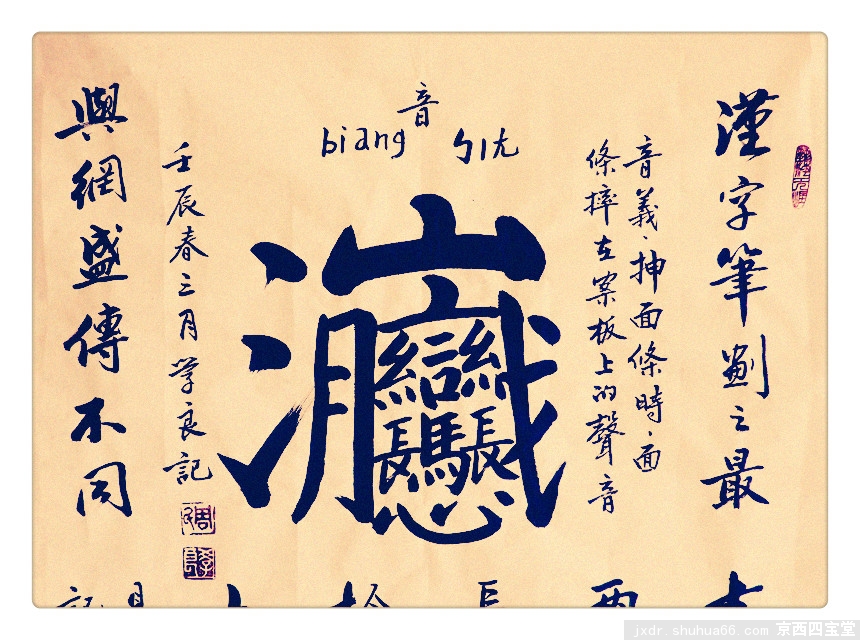 漢字筆劃之最
音義·抻面條時·面
條摔在案板上的聲音
音
biang ㄅㄧㄤ
與網盛傳不同
壬辰春三月學良記
周
學良
jxdr.shuhua66.com 京西四宝堂